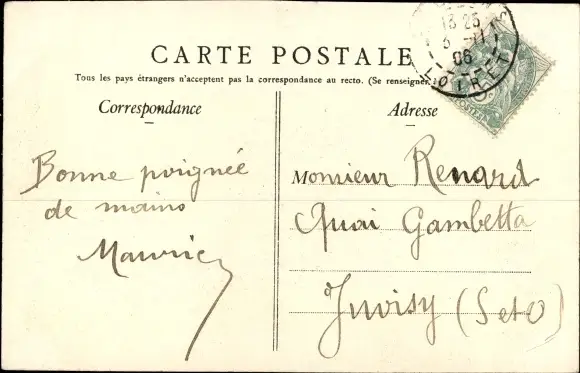 CARTE POSTALE
Tous les pays étrangers n'acceptent pas la correspondance au recto. (Se renseigner
Correspondance
Adresse
Bonne poignée
de mains
Maurice
Monsieur Renard
Quai Gambetta
à Juvisy (S et O)
13 25
3 -11
06
LOIRET
POSTES